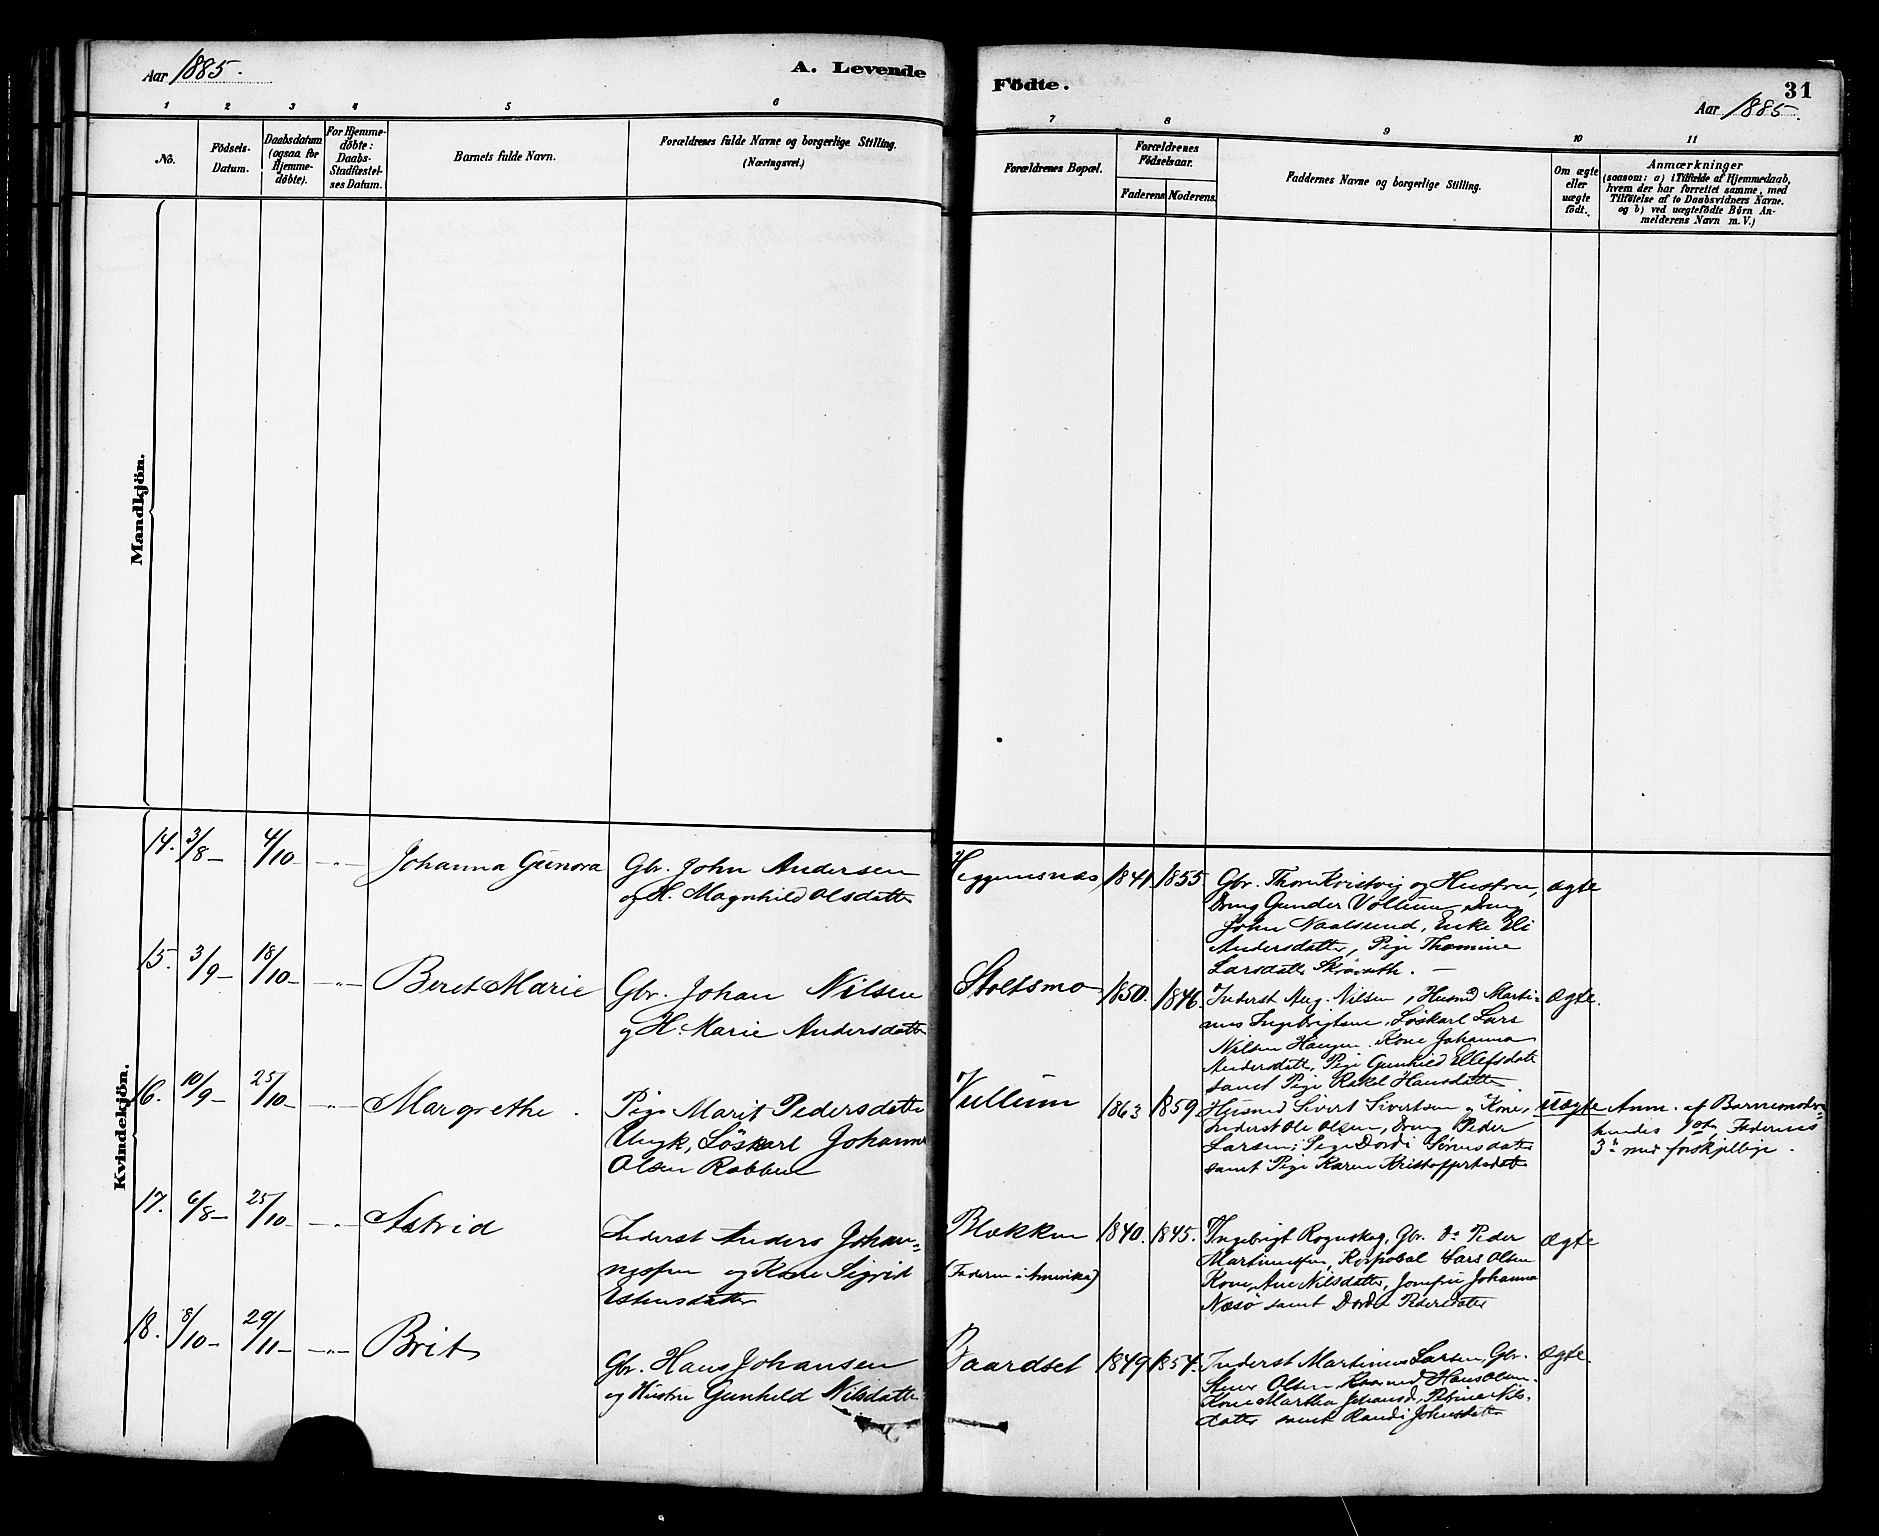 Aar 1885.
A. Levende
1 2 3 4 5 6
No.
Födsels-
Datum.
Daabsdatum
(ogsaa for
Hjemme-
døbte).
For Hjemme-
døbte:
Daabs-
Stadfæstel-
ses Datum.
Barnets fulde Navn.
Forældrenes fulde Navne og borgerlige Stilling.
(Næringsvei.)
Mandkjön.
Kvindekjön.
14. 3/8 – 4/10 – –"– Johanna Gunora
Gbr. John Andersen
og H. Magnhild Olsdatter
15. 3/9 – 18/10 – –"– Beret Marie
Gbr. Johan Nilsen
og H. Marie Andersdatter
16. 10/9 – 25/10 – –"– Margrethe.
Pige Marit Pedersdatter
Løskarl Johannes
Olsen
17. 6/8 – 25/10 – –"– Astrid
Inderst Anders Johan-
nessen og Kone Sigrid
Estensdatter
18. 8/10 – 29/11 – –"– Brit
Gbr. Hans Johansen
og Hustru Gunhild Nilsdatter
Födte.
31
Aar 1885.
7 8 9 10 11
Forældrenes Bopæl.
Forældrenes
Födselsaar.
Faderens Moderens.
Faddernes Navne og borgerlige Stilling.
Om ægte
eller
uægte
födt.
Anmærkninger
(saasom: a) i Tilfælde af Hjemmedaab,
hvem der har forrettet samme, med
Tilføielse af to Daabsvidners Navne.
og b) ved uægtefödte Børn An-
melderens Navn m. V.)
1841 1855
Gbr. Thore Kvistvig og Hustru,
Dreng Gunder Dreng
John Naalsund, Enke Eli
Andersdatter, Pige Thomine
Larsdatter –
ægte
Stoltsmo 1850. 1846.
Inderst Aug. Nilsen, Husmd Marti-
nus Ingebrigtsen, Løskarl Lars
Nilsen Haugen. Kone Johanna
Andersdatter, Pige Gunhild Ellefsdatter
samt Pige Rakel Hansdatter
ægte.
Vullum 1863 1859
Husmd Sivert Sivertsen og Kone,
Inderst Ole Olsen, Dreng Peder
Larsen; Pige Dordi
samt Pige Karen Kristoffersdatter
uægte
Anm. af Barnemoder
hendes 1ste, Faderens
3de med forskjellige.
Blækken 1840. 1845.
(Faderen i Amerika)
Ingebrigt Rognskog, Gbr. Do Peder
Martinussen, Korporal Lars Olsen
Kone, Ane Nilsdatter, Jomfru Johanna
Næsø samt Dordi Pedersdatter
Ægte
Baardset 1849 1854.
Inderst Martinus Larsen, Gbr.
Olsen, Husmd Hans Olsen.
Kone Martha Johansd, Nils-
datter samt Randi Johnsdatter
Ægte.